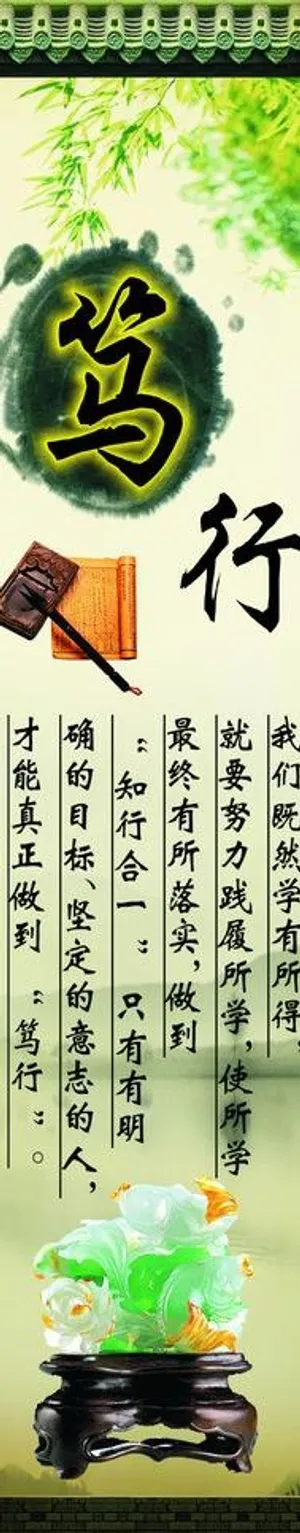 笃
行
我们既然学有所得，
就要努力践履所学，使所学
最终有所落实，做到
“知行合一”。只有有明
确的目标、坚定的意志的人，
才能真正做到“笃行”。